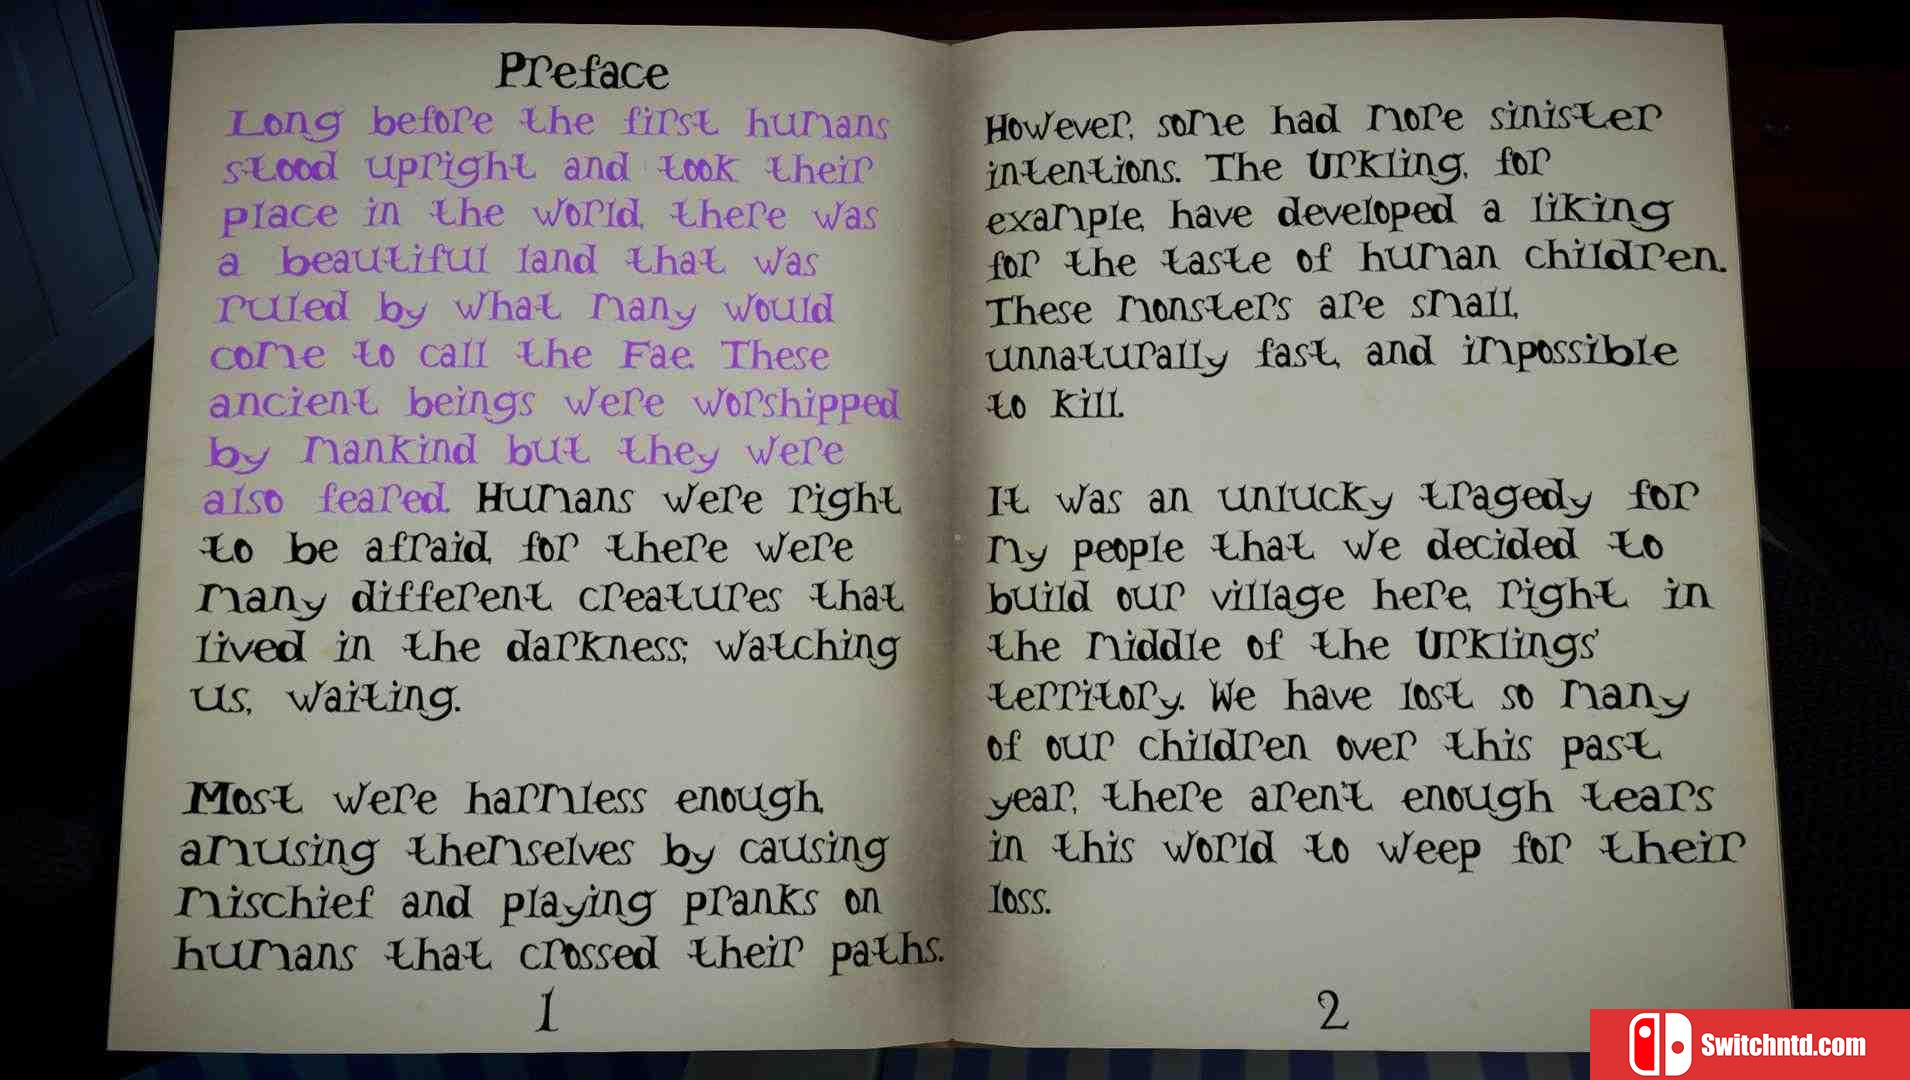 Preface
Long before the first humans
stood upright and took their
place in the world, there was
a beautiful land that was
ruled by what many would
come to call the Fae. These
ancient beings were worshipped
by mankind but they were
also feared. Humans were right
to be afraid, for there were
many different creatures that
lived in the darkness; watching
us, waiting.
Most were harmless enough,
amusing themselves by causing
mischief and playing pranks on
humans that crossed their paths.
1
However, some had more sinister
intentions. The Urkling, for
example, have developed a liking
for the taste of human children.
These monsters are small,
unnaturally fast, and impossible
to kill.
It was an unlucky tragedy for
my people that we decided to
build our village here, right in
the middle of the Urklings'
territory. We have lost so many
of our children over this past
year, there aren't enough tears
in this world to weep for their
loss.
2
Switchntd.com